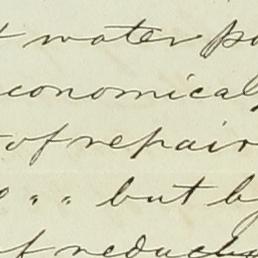 t water po
conomical
of repair
" " but b
of reduc